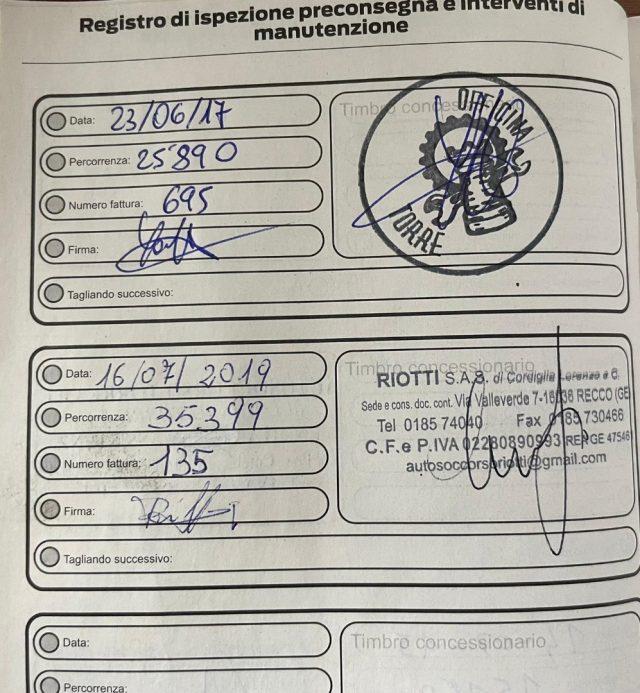 Registro di ispezione preconsegna e interventi di
manutenzione
Data: 23/06/17
Percorrenza: 25890
Numero fattura: 695
Firma:
Tagliando successivo:
Timbro conces
OFFICINA
TORRE
Data: 16/07/2019
Percorrenza: 35399
Numero fattura: 135
Firma:
Tagliando successivo:
Timbro concessionario
RIOTTI S.A.S. di Cordiglia Lorenzo e C.
Sede e cons. doc. cont. Via Valleverde 7- RECCO (GE
Tel 0185 74040 Fax 0185 730466
C.F.e P.IVA 02280890993 REA GE 47546
autosoccorsoriotti@gmail.com
Data:
Percorrenza:
Timbro concessionario